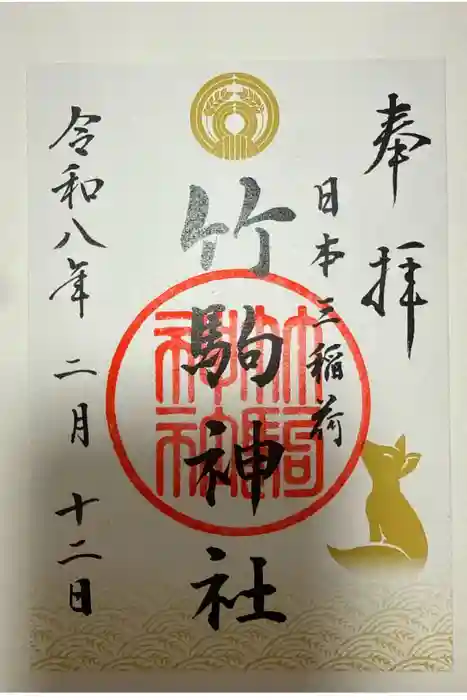 奉拝
日本三稲荷
竹駒神社
竹駒神社
令和八年 二月 十二日